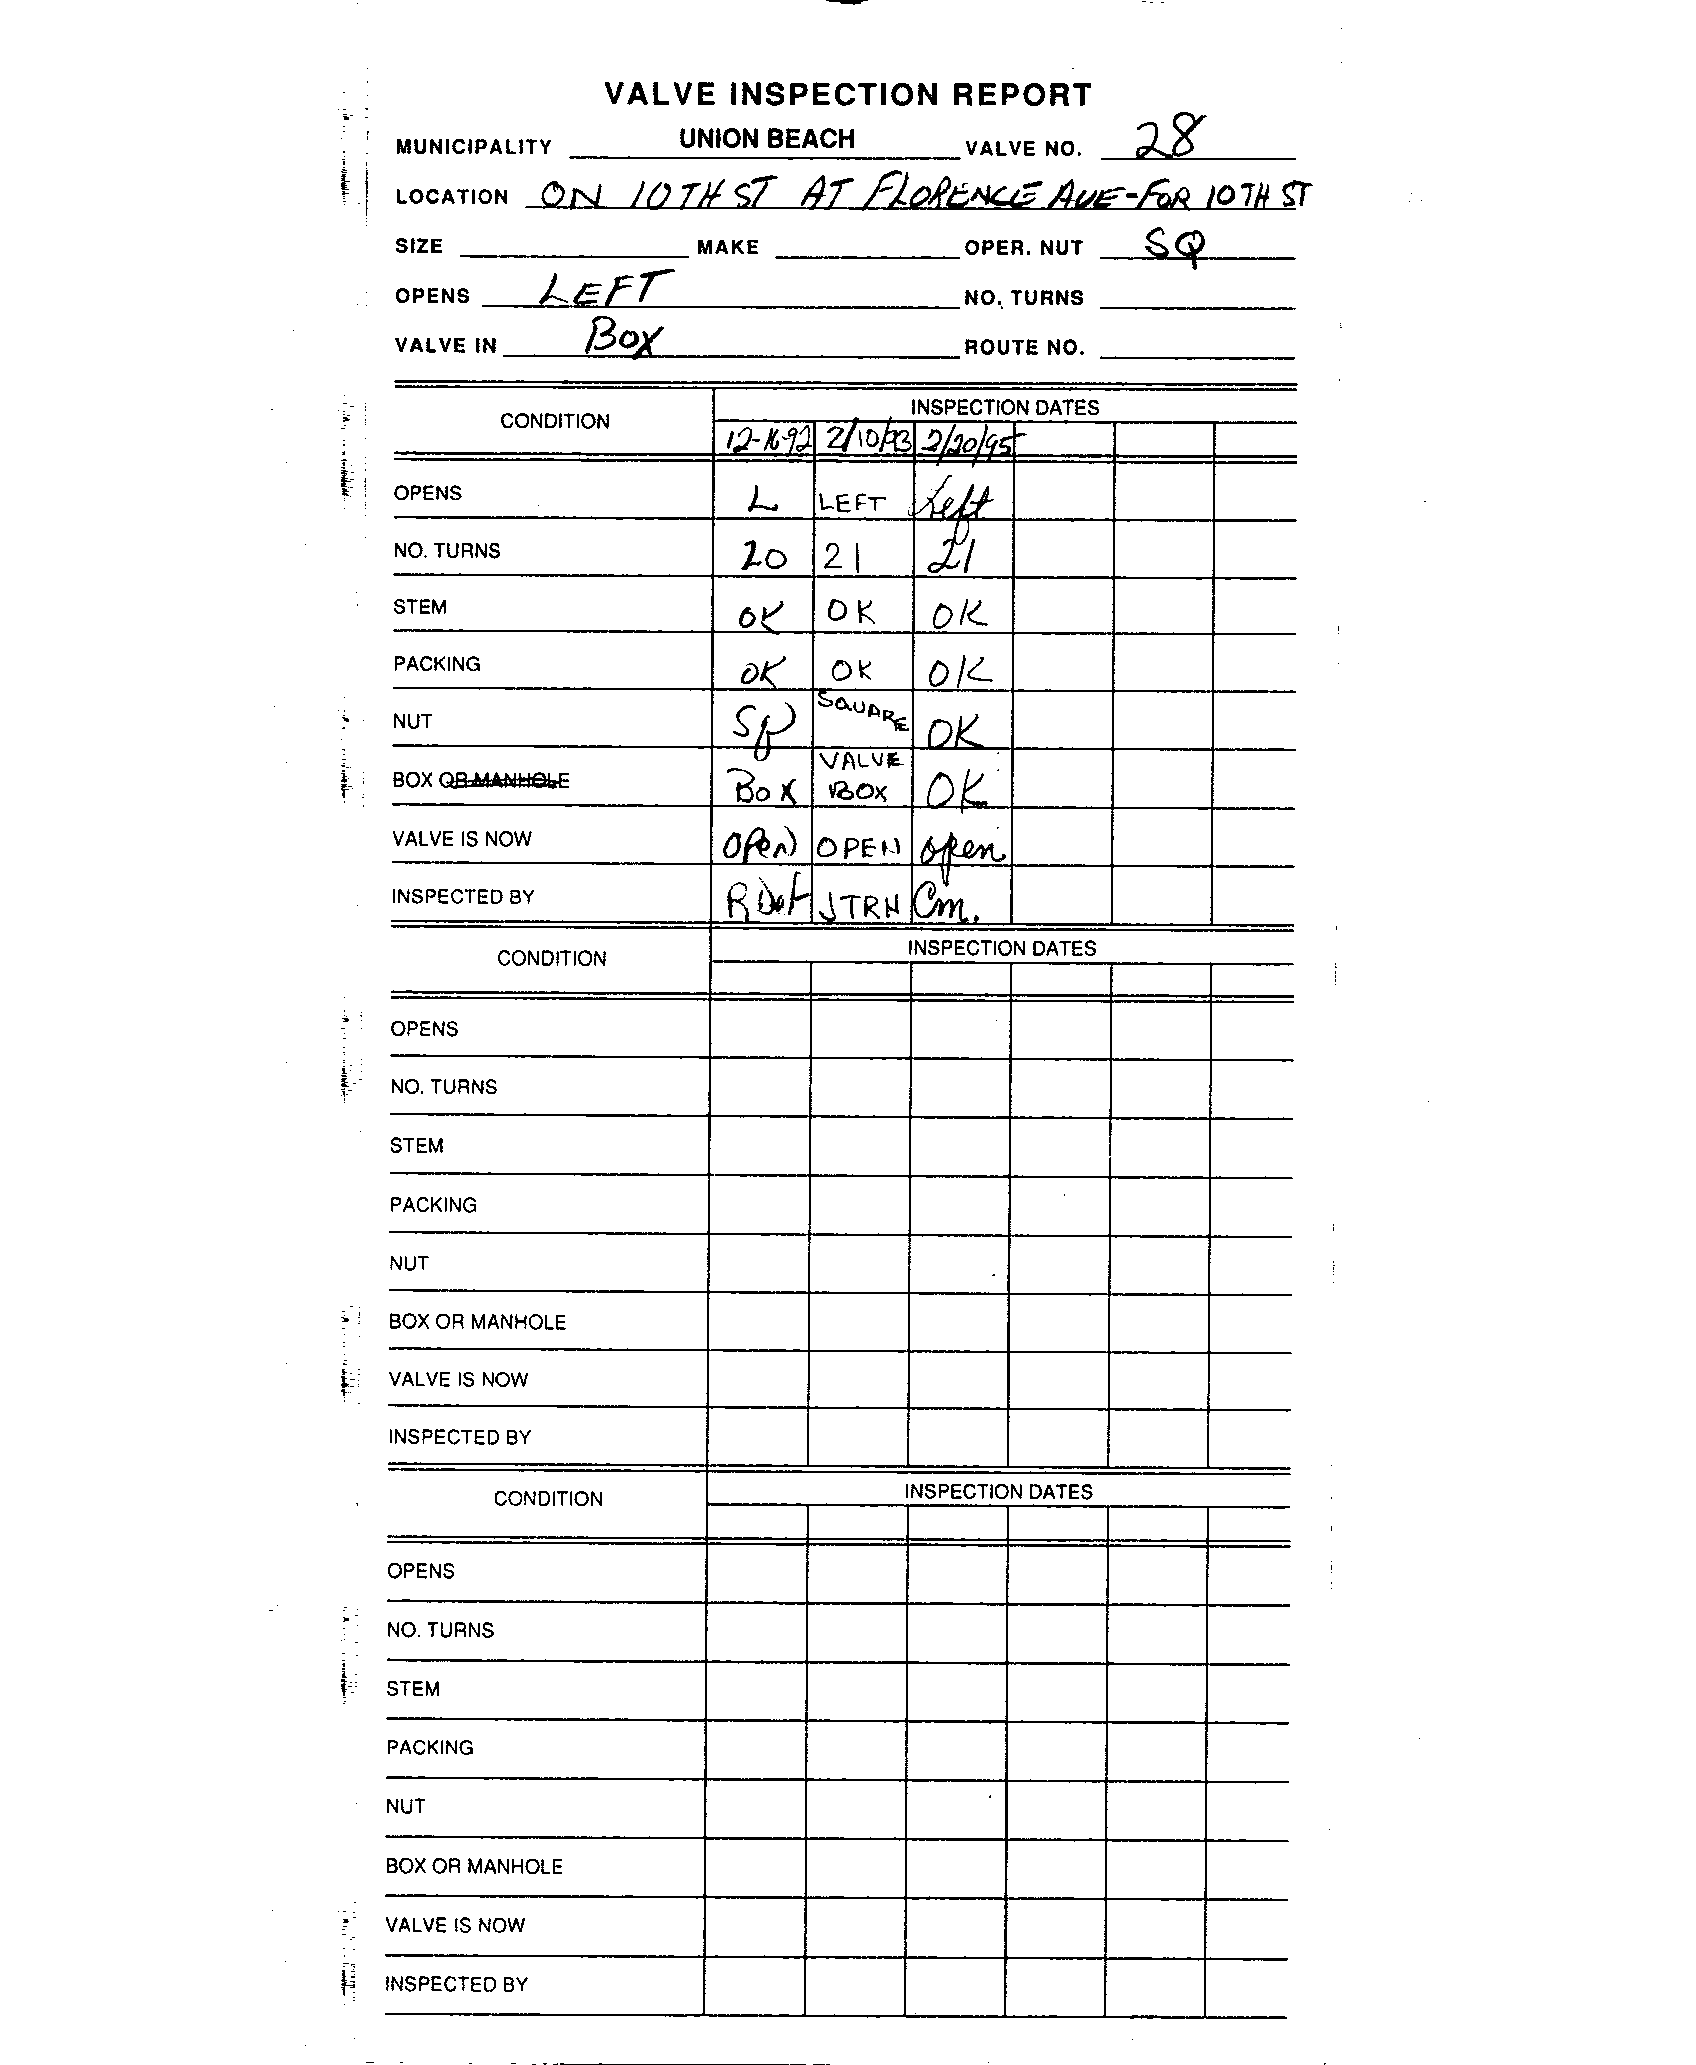 VALVE INSPECTION REPORT
MUNICIPALITY UNION BEACH VALVE NO. 28
LOCATION ON 10TH ST AT FLORENCE AVE-FOR 10TH ST
SIZE MAKE OPER. NUT SQ
OPENS LEFT NO. TURNS
VALVE IN BOX ROUTE NO.
CONDITION INSPECTION DATES
12-16-92 2/10/93 2/20/95
OPENS L LEFT Left
NO. TURNS 20 21 21
STEM OK OK OK
PACKING OK OK OK
NUT SQ SQUARE OK
BOX OR MANHOLE BOX VALVE BOX OK
VALVE IS NOW OPEN OPEN open
INSPECTED BY JTRN Cm.
CONDITION INSPECTION DATES
OPENS
NO. TURNS
STEM
PACKING
NUT
BOX OR MANHOLE
VALVE IS NOW
INSPECTED BY
CONDITION INSPECTION DATES
OPENS
NO. TURNS
STEM
PACKING
NUT
BOX OR MANHOLE
VALVE IS NOW
INSPECTED BY